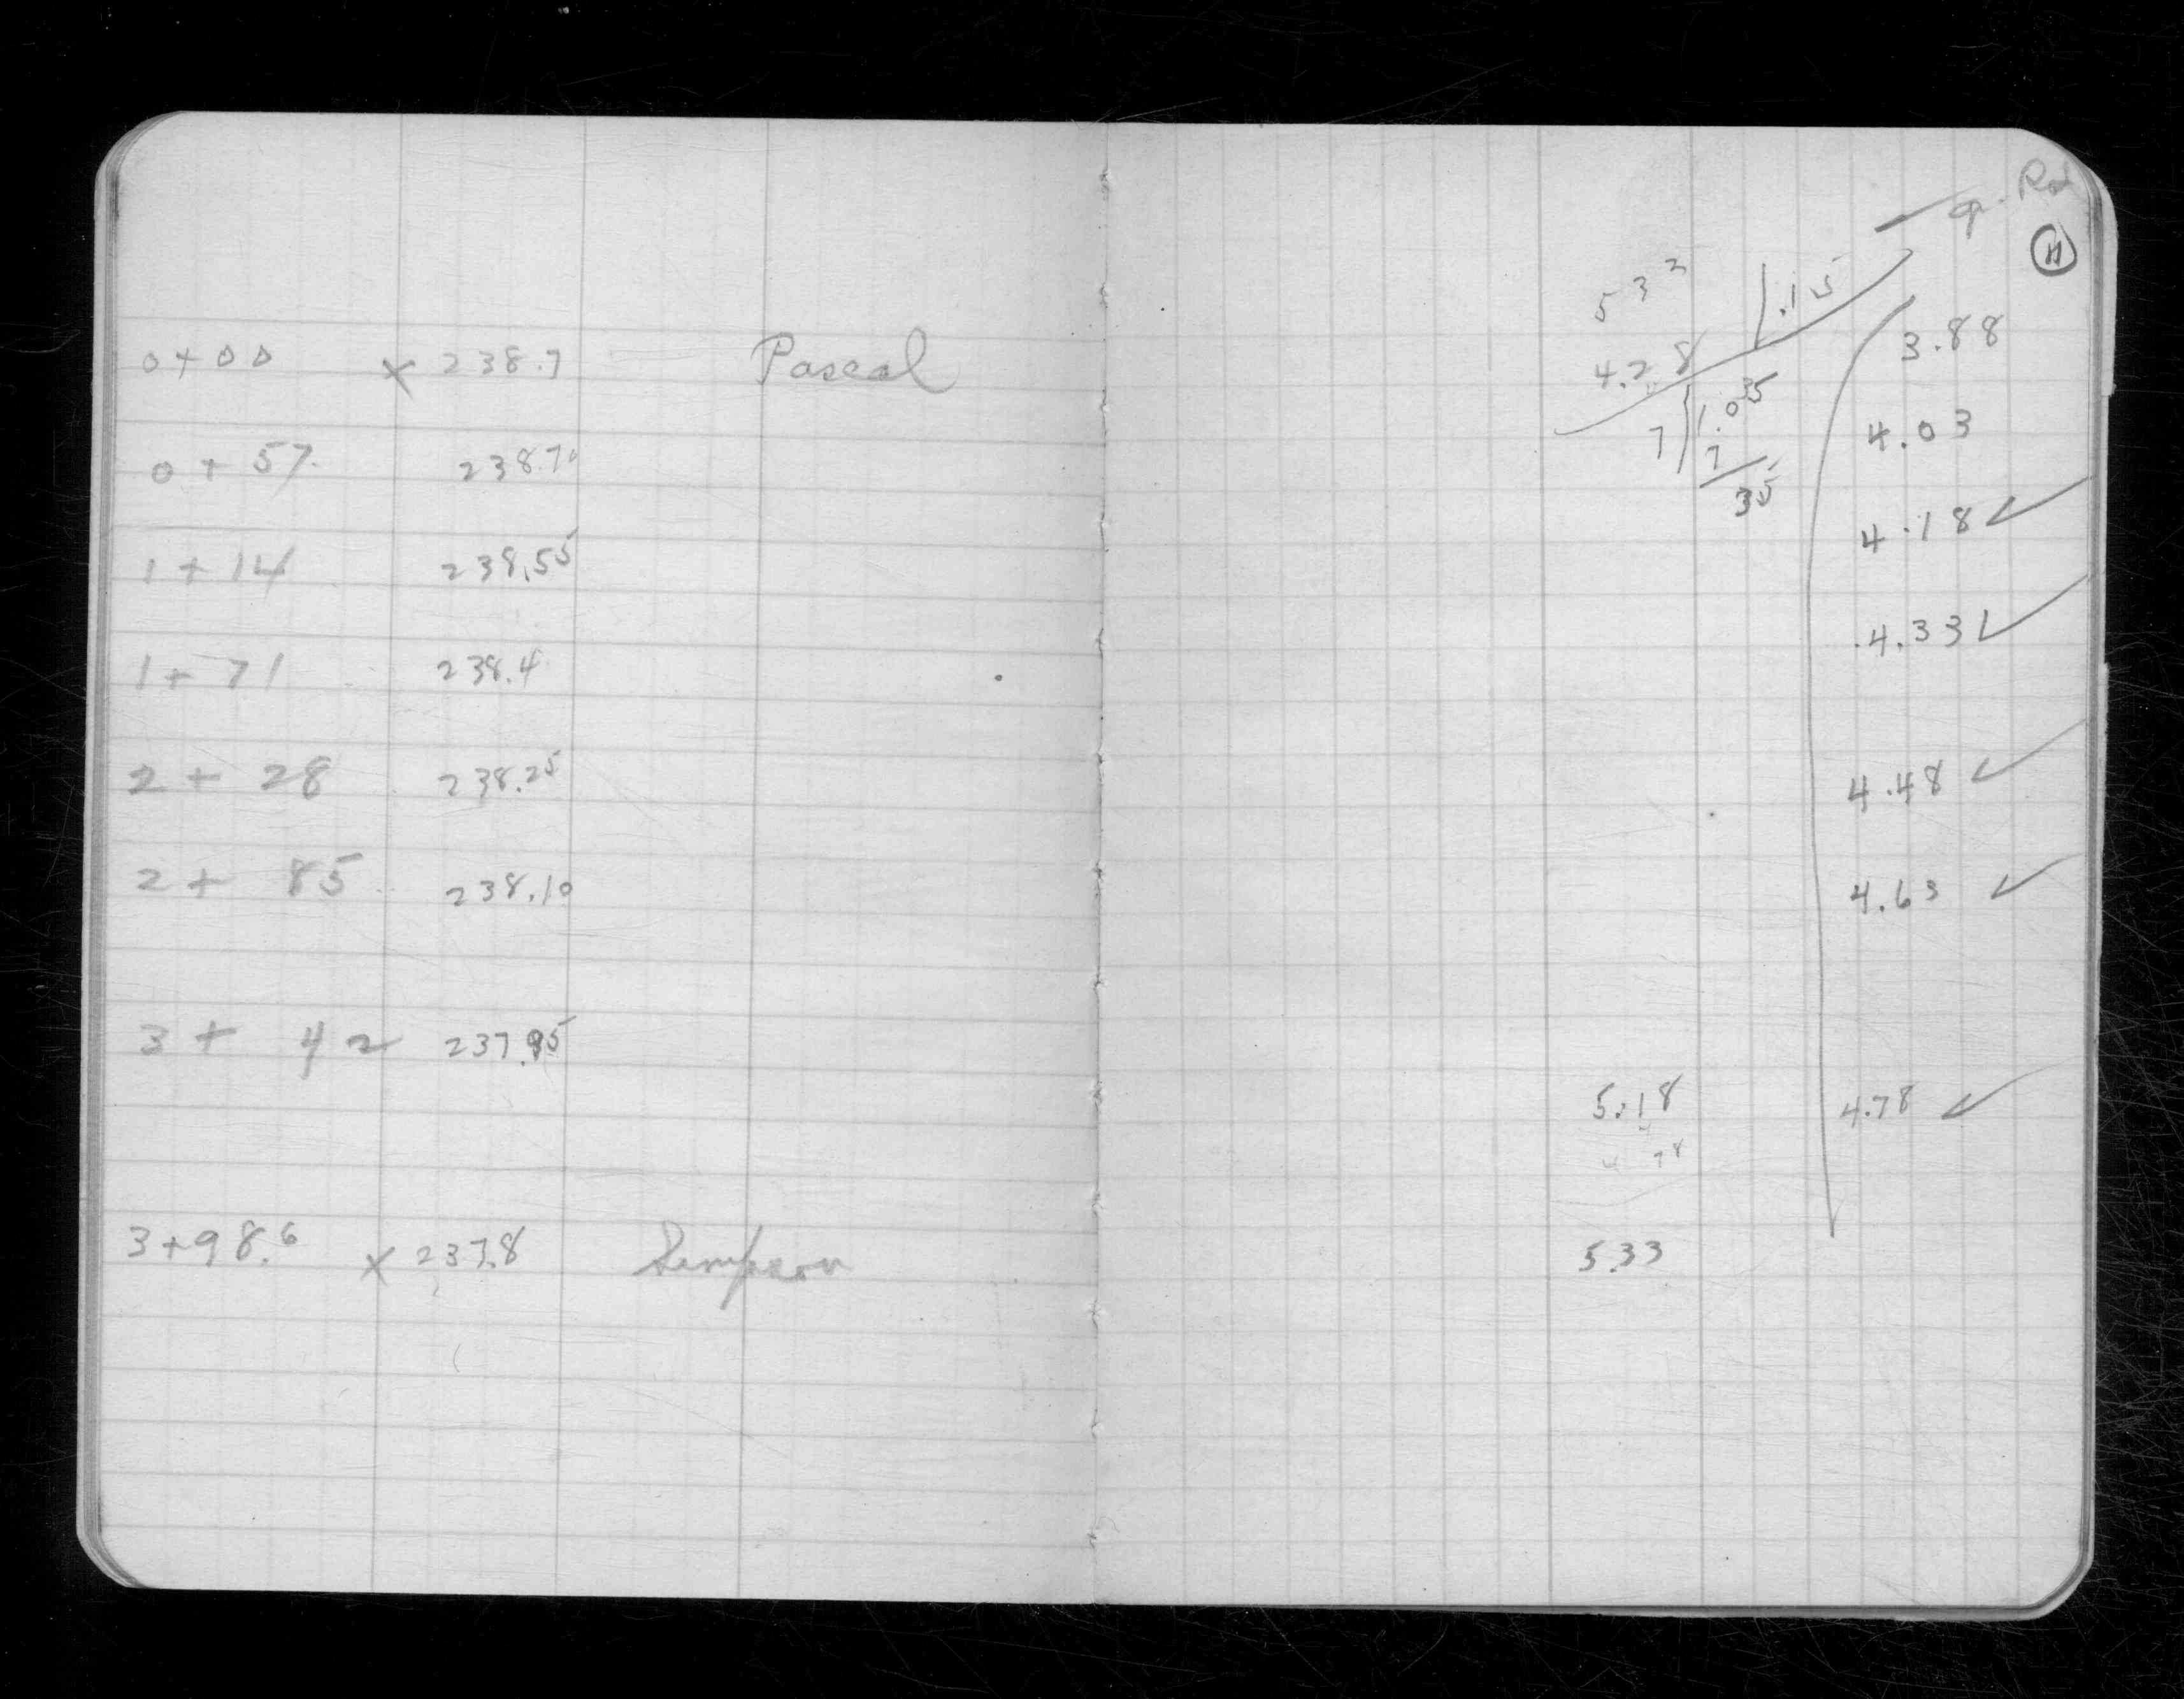 0+00 × 238.7 Pascal
0+57 238.70
1+14 238.55
1+71 238.4
2+28 238.25
2+85 238.10
3+42 237.95
3+98.6 × 237.8 Simpson
Rod
5 3 3 .15
4.28
7 1.05
7
35
3.88
4.03
4.18 ✓
4.33 ✓
4.48 ✓
4.63 ✓
5.18 4.78 ✓
4 78
5.33